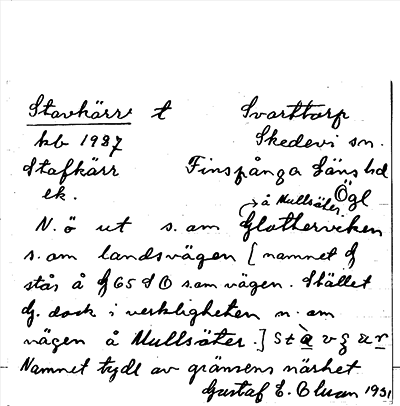 Stavkärr t Svarttorp
hb 1937 Skedevi sn.
Stafkärr Finspånga läns hd
ek. Ögl
å Mullsäter.
N. ö ut s. om Glottherviken
s. om landsvägen [namnet
står å GS s.om vägen. Stället
dock i verkligheten n. om
vägen å Mullsäter.]
Namnet tydl av gränsens närhet
Gustaf E. Olson 1931